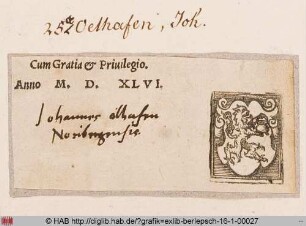 252a Oelhafen, Joh.
Cum Gratia & Priuilegio.
Anno M. D. XLVI.
Johannes ölhafen
Noribergensis
© HAB http://diglib.hab.de/?grafik=exlib-berlepsch-16-1-00027